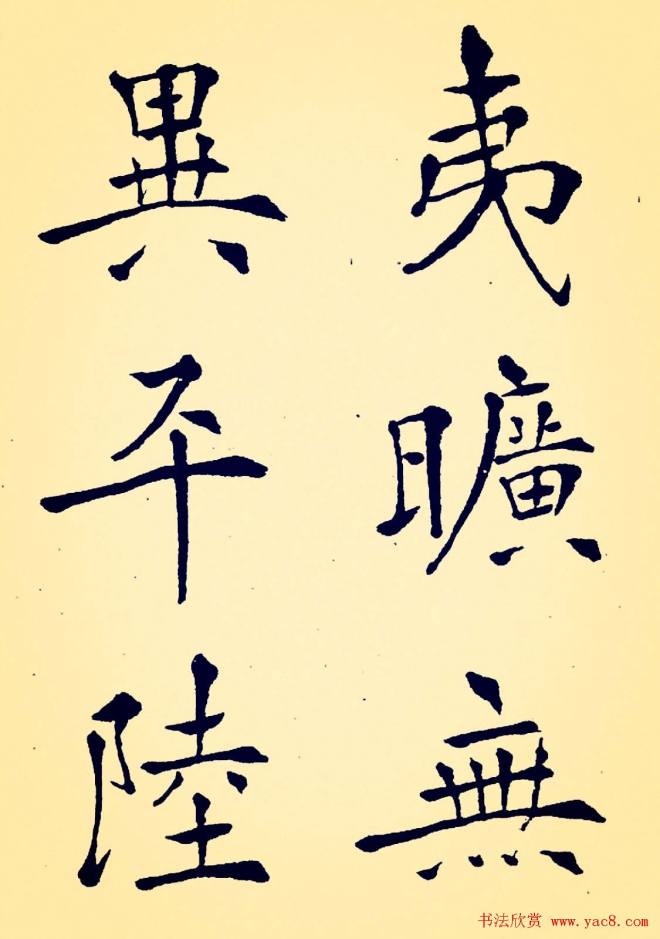 夷曠無
異平陸
书法欣赏 www.yac8.com